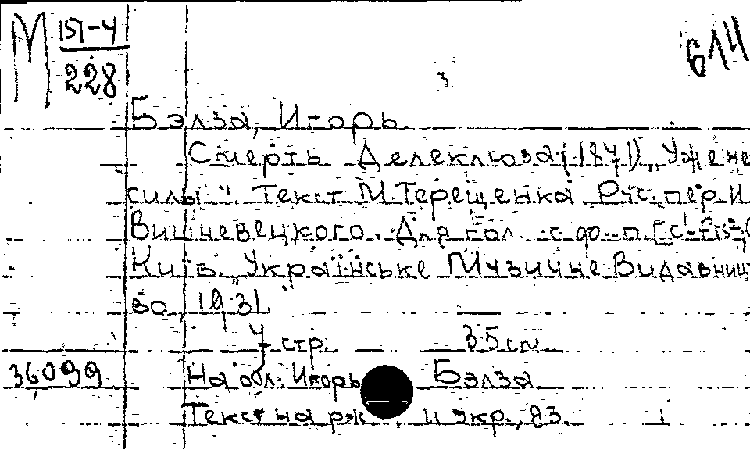 М 151-4
228
614
Бэлза, Игорь
Смерть Делеклюза (1871) „Уж не
силы". Текст М. Терещенка Рус. пер. И
Вишневецкого. Для гол. с ф.-п. [c'-fis²]
Київ. „Українське Музичне Видавниц
во, 1931
4 стр. 35 см
36099 На обл.: Игорь Бэлза
Текст на и укр., яз.